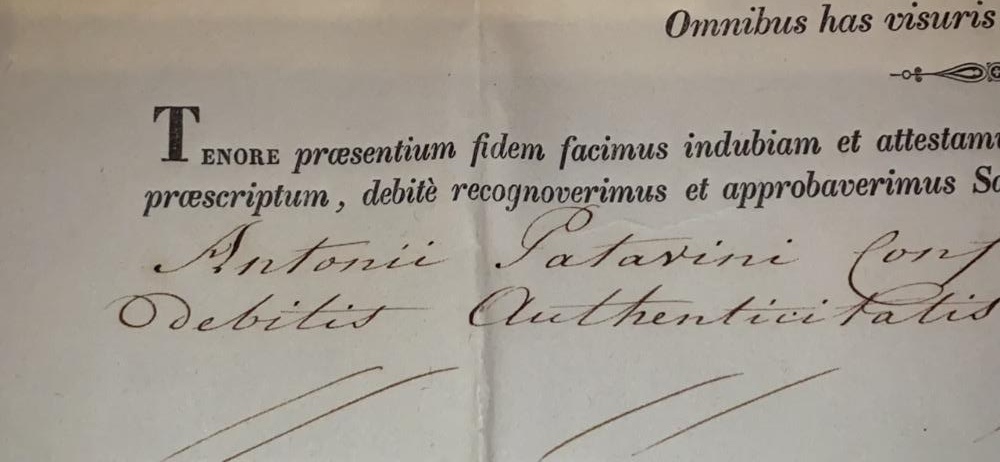 Omnibus has visuris
TENORE præsentium fidem facimus indubiam et attestamu
præscriptum, debitè recognoverimus et approbaverimus Sa
Antonii Patavini Conf
Debitis Authenticitatis